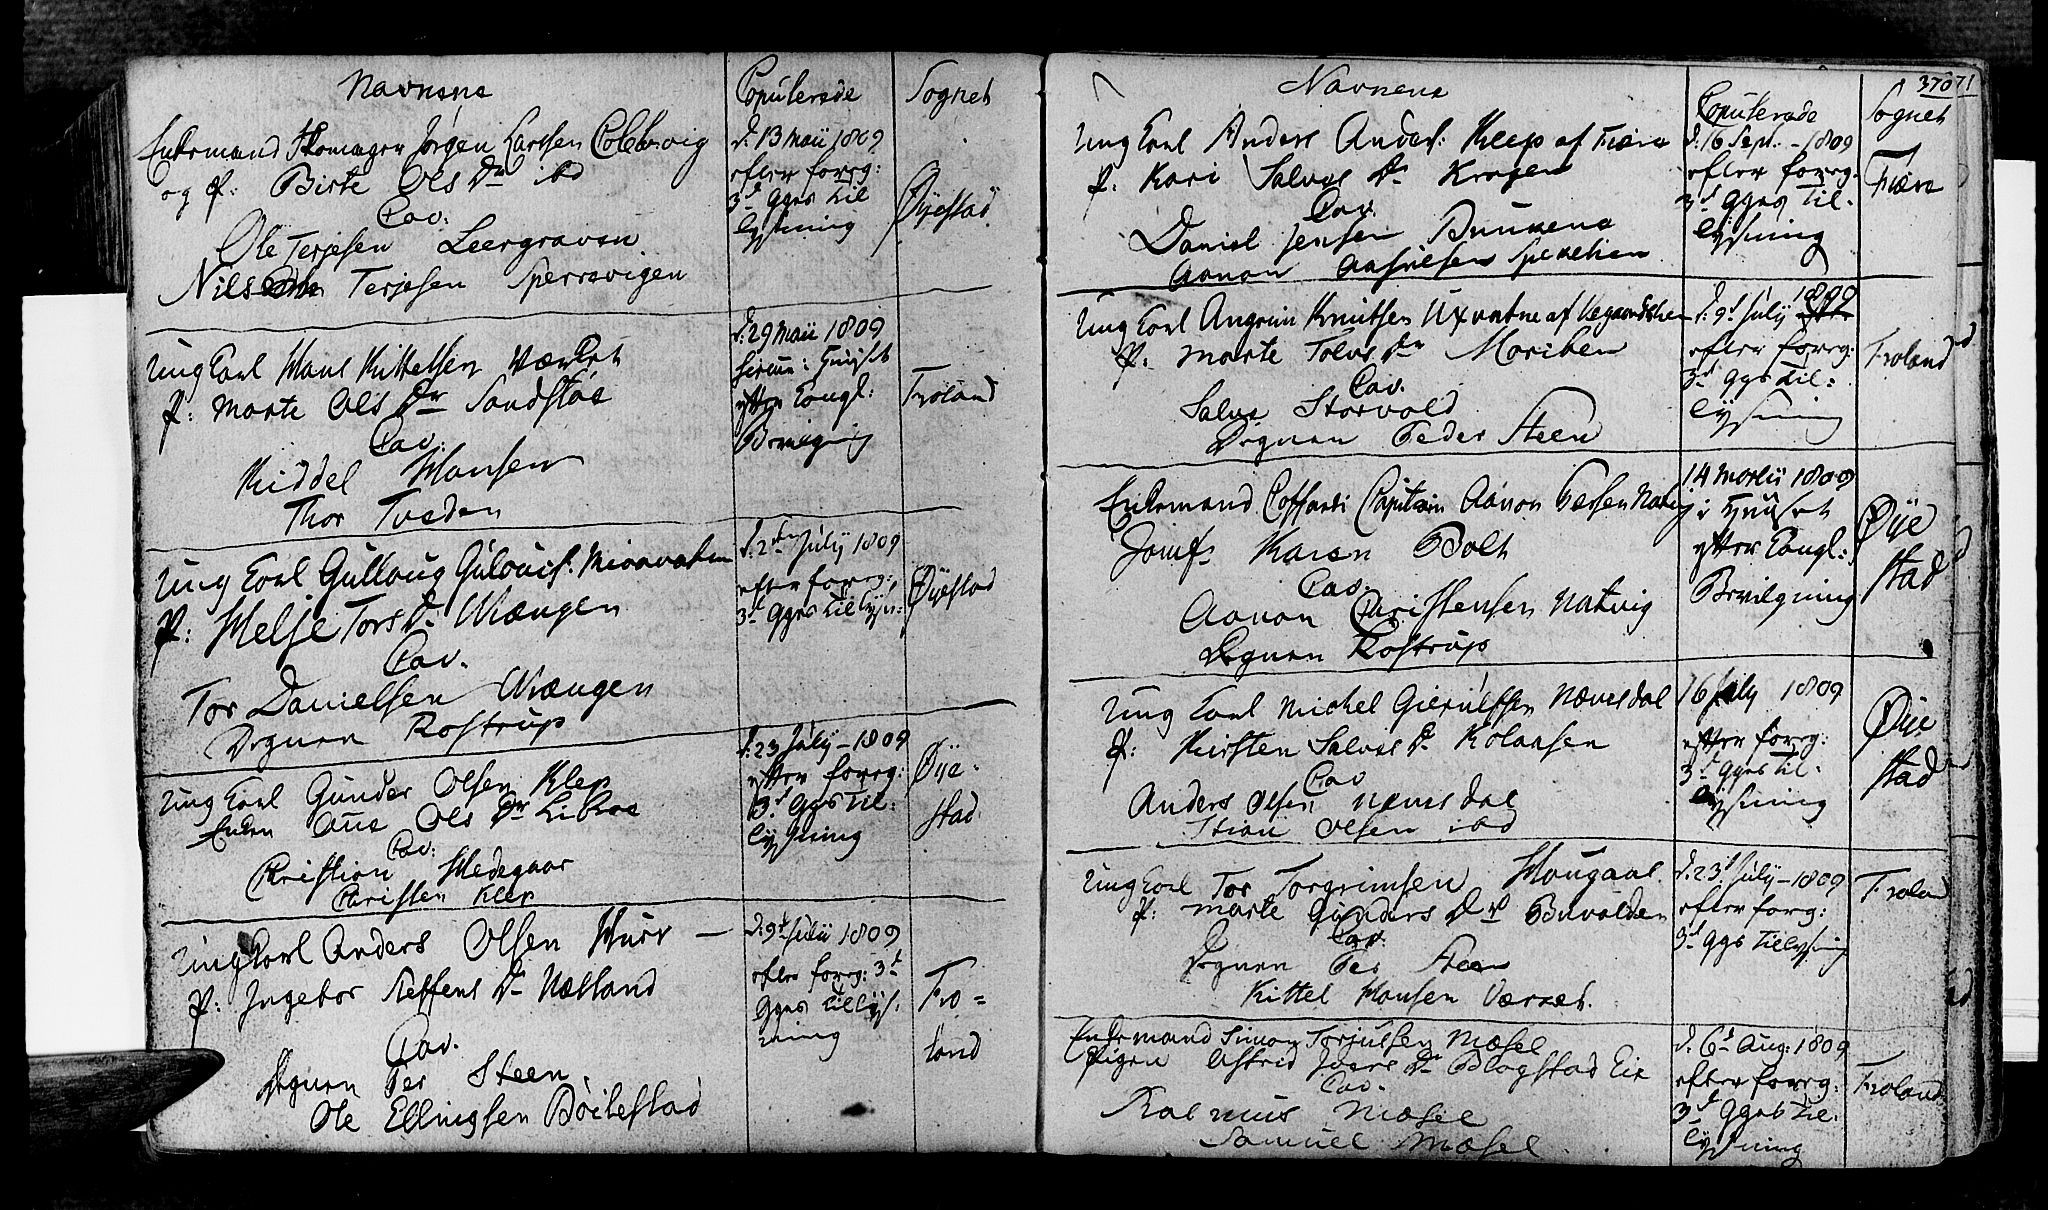 Navnene
Copulerede
Sognet
Enkemand Skomager Jørgen Larsen Colbiørnvig
og P: Birte Ols Dr ibd
Cav:
Ole Terjesen Leergraven
Nils Terjesen Sperrevigen
d: 13 Maii 1809
efter foreg:
3de Ggrs til
lysning
Øyestad
Ung Karl Hans Kittelsen Værket
P: Marte Ols Dr Sandstøe
Cav:
Kiddel Hansen
Thor Tveden
d: 29 Maii 1809
hiem: Huuset
efter Kongl:
Bevilgning
Froland
Ung Karl Gullaug Gulovs: Mioevaten
P: Helje Tors Dr Vrængen
Cav.
Tor Danielsen Vrængen
Degnen Rostrup
d: 2den July 1809
efter foreg:
3de Ggrs tillysn:
Øyestad
Ung Karl Gunder Olsen Klep
Enken Ane Ols Dr Libroe
Cav:
Christian Hedegaar
Christen Klep
d: 23 July - 1809
efter foreg:
3de Ggrs til:
lysning
Øye-
stad
Ung Karl Anders Olsen Hurv -
P: Ingebor Steffens Dr Næsland
Cav.
Degnen Per Steen
Ole Ellingsen Bøilestad
d: 9de Julii 1809
efter foreg: 3de
Ggrs tillys.
ning
Fro=
land
370 71
Navnene
Copulerede
Sognet
Ung Karl Anders Anders: Kleep af Fiære
P. Kari Salves Dr Kragen
Cav.
Daniel Jensen Buukene
Aanon Aasulsen Spekelien
d: 16 Sept: - 1809
efter foreg.
3de Ggrs til-
lysning
Fiære
Ung Karl Angrim Knutsen Uxvatne af Vegaardshei
P. Marte Tolvs Dr Moriben
Cav.
Salve Storvold
Degnen Peder Steen
d: 9de July 1809
efter foreg:
3de Ggs til:
lysning
Froland
Enkemand Coffardi Capitain Aanon Natvig
Jomf: Karen Bolt
Cav.
Aanon Christensen Natvig
Degnen Rostrup
14 Martii 1809
i Huuset
efter Kongl:
Bevilgning
Øye
stad
Ung Karl Michel Gierulfsen Nævesdal
P: Kirsten Salves Dr Kolaasen
Cav
Anders Olsen Nævesdal
Stian Olsen ibd
16 July 1809
efter foreg:
3de Ggrs til-
lysning
Øye
stad
Ung Karl Tor Torgrimsen Hougaas
P: Marte Gunders Dr Buvolden
Cav:
Degnen Per Steen
Kittel Hansen Værket.
d. 23de July - 1809
efter forg:
3de Ggs tillysning
Froland
Enkemand Simon Torjulsen Mæsel
Pigen Astrid Ivers Dr Blagstad Eie
Cav.
Rasmus Mæsel
Samuel Mæsel
d. 6te Aug: 1809
efter foreg:
3de Ggrs til:
lysning
Froland